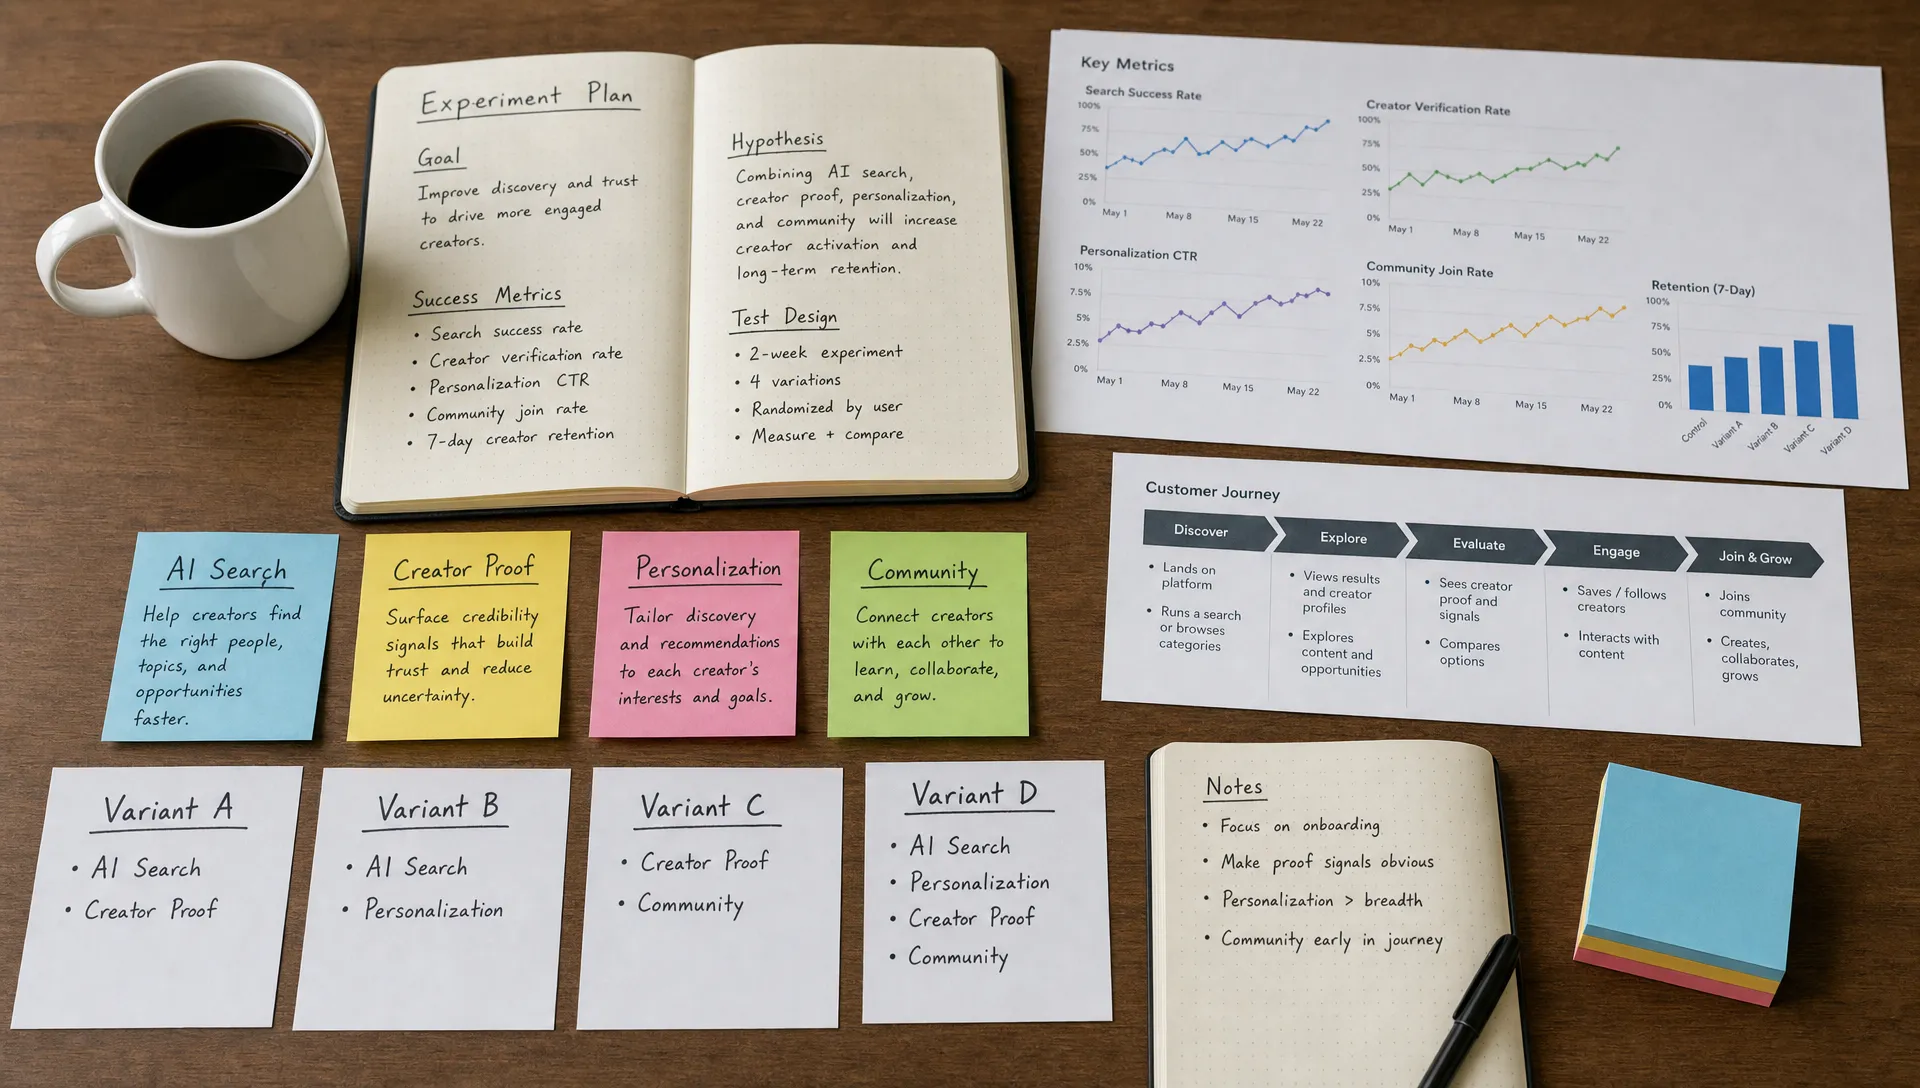 Experiment Plan
Goal
Improve discovery and trust
to drive more engaged
creators.
Success Metrics
• Search success rate
• Creator verification rate
• Personalization CTR
• Community join rate
• 7-day creator retention
Hypothesis
Combining AI search,
creator proof, personalization,
and community will increase
creator activation and
long-term retention.
Test Design
• 2-week experiment
• 4 variations
• Randomized by user
• Measure + compare
Key Metrics
Search Success Rate
100%
75%
50%
25%
0%
May 1 May 8 May 15 May 22
Creator Verification Rate
100%
75%
50%
25%
0%
May 1 May 8 May 15 May 22
Personalization CTR
10%
7.5%
5%
2.5%
0%
May 1 May 8 May 15 May 22
Community Join Rate
10%
7.5%
5%
2.5%
0%
May 1 May 8 May 15 May 22
Retention (7-Day)
100%
75%
50%
25%
0%
Control Variant A Variant B Variant C Variant D
Customer Journey
Discover
• Lands on
platform
• Runs a search
or browses
categories
Explore
• Views results
and creator
profiles
• Explores
content and
opportunities
Evaluate
• Sees creator
proof and
signals
• Compares
options
Engage
• Saves / follows
creators
• Interacts with
content
Join & Grow
• Joins
community
• Creates,
collaborates,
grows
AI Search
Help creators find
the right people,
topics, and
opportunities
faster.
Creator Proof
Surface credibility
signals that build
trust and reduce
uncertainty.
Personalization
Tailor discovery
and recommendations
to each creator's
interests and goals.
Community
Connect creators
with each other to
learn, collaborate,
and grow.
Variant A
• AI Search
• Creator Proof
Variant B
• AI Search
• Personalization
Variant C
• Creator Proof
• Community
Variant D
• AI Search
• Personalization
• Creator Proof
• Community
Notes
• Focus on onboarding
• Make proof signals obvious
• Personalization > breadth
• Community early in journey